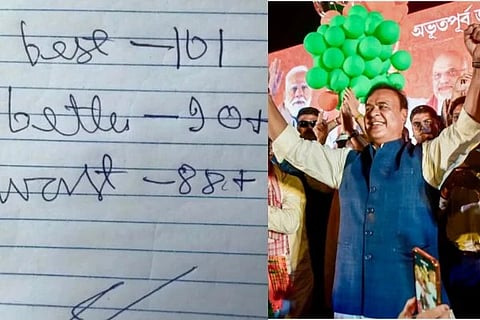 best - 101
better - 90+
worst - 88+
অভূতপূর্ব